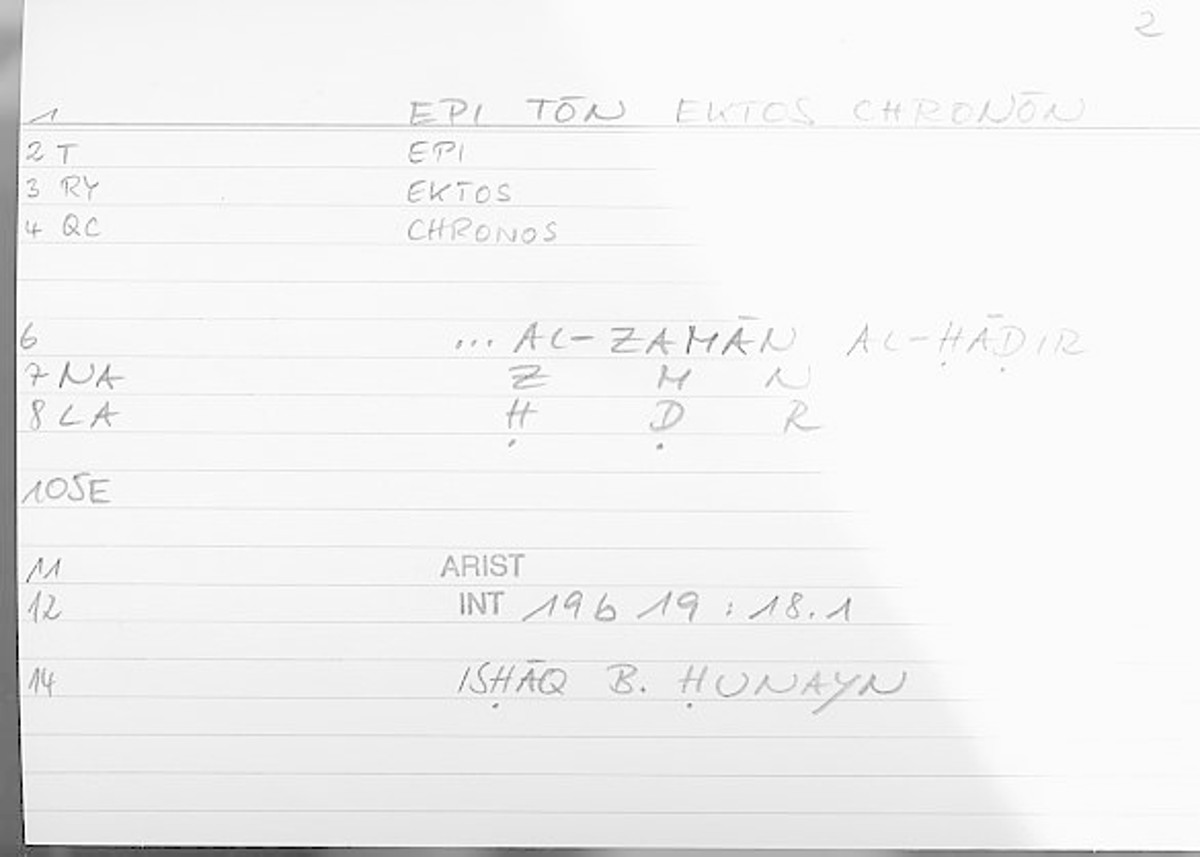 2
1 EPI TŌN EKTOS CHRONŌN
2 T EPI
3 RY EKTOS
4 QC CHRONOS
6 ... AL-ZAMĀN AL-ḤĀḌIR
7 NA Z M N
8 LA Ḥ Ḍ R
10SE
11 ARIST
12 INT 19b 19 : 18.1
14 ISḤĀQ B. ḤUNAYN